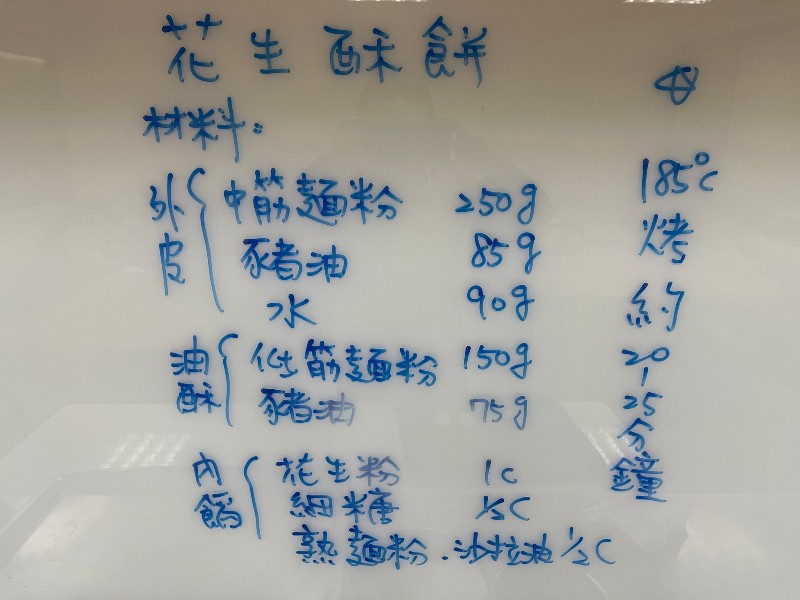 花生酥餅
材料:
外皮 中筋麵粉 250g
豬油 85g
水 90g
油酥 低筋麵粉 150g
豬油 75g
內餡 花生粉 1C
細糖 ½C
熟麵粉.沙拉油 1/2C
185°C
烤
約
20
|
25
分
鐘